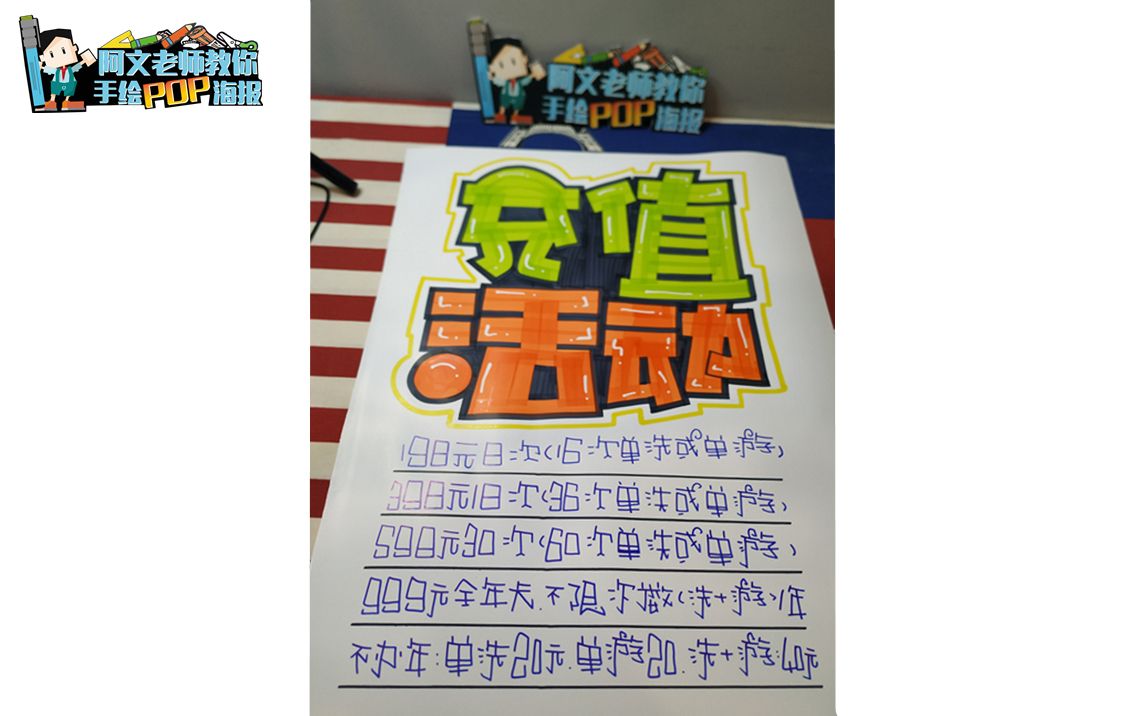 阿文老师教你
手绘POP海报
阿文老师教你
手绘POP海报
充值
活动
198元8次(16次单洗或单游)
398元18次(36次单洗或单游)
598元30次(60次单洗或单游)
999元全年卡.不限次数(洗+游)1年
不办年:单洗20元.单游20.洗+游:40元